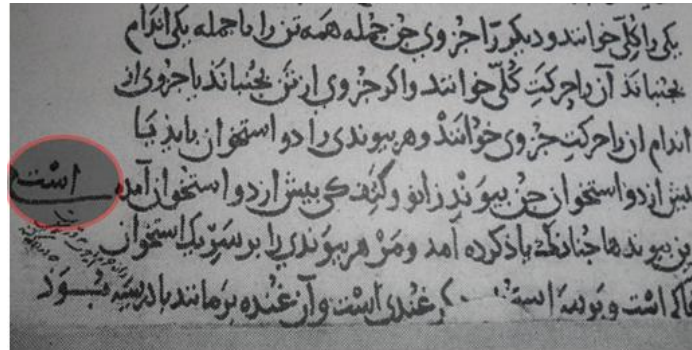 یکی را کلّی خوانند و دیکر را جزوی جن جمله همه تن را یا جمله یکی اندام
بجنباند آن را حرکتِ کُلّی خوانند و اکر جزوی از تن بجنباند یا جزوی از
اندام ان را حرکتِ جزوی خوانند و هر بیوندی را دو استخوان بایذ یا
بیش از دو استخوان جن بیوندِ زانو و کتف کی بیش از دو استخوان آمده است
بیوندها جنانک یاذ کرده آمد و مر هر بیوندی را بر سر یک استخوان
مغاکی است و بر سر غندی است و آن غنده بر مانند بادریسه بوذ